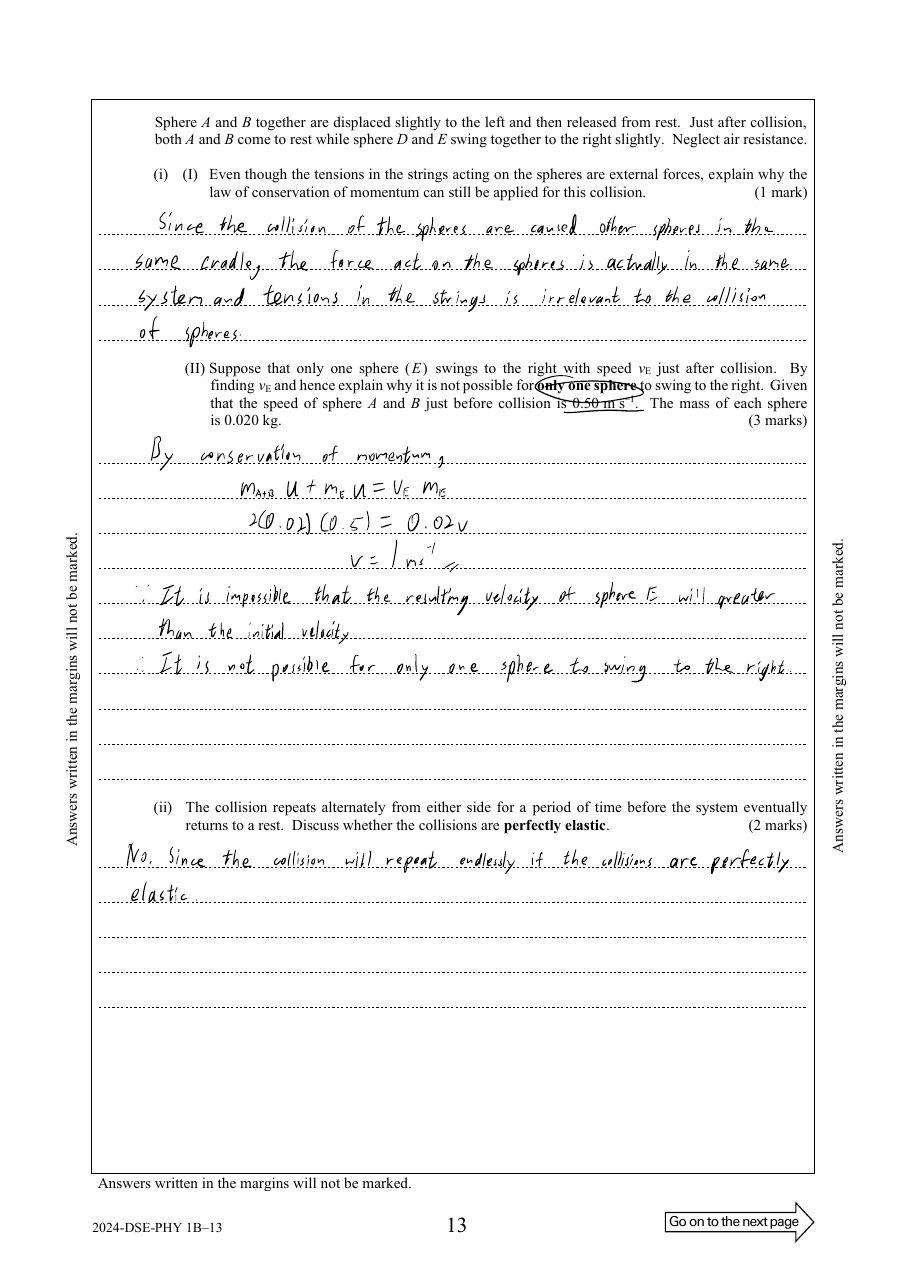 Sphere A and B together are displaced slightly to the left and then released from rest. Just after collision,
both A and B come to rest while sphere D and E swing together to the right slightly. Neglect air resistance.
(i) (I) Even though the tensions in the strings acting on the spheres are external forces, explain why the
law of conservation of momentum can still be applied for this collision. (1 mark)
Since the collision of the spheres are caused other spheres in the
same cradle, the force act on the spheres is actually in the same
system and tensions in the strings is irrelevant to the collision
of spheres.
(II) Suppose that only one sphere (E) swings to the right with speed vE just after collision. By
finding vE and hence explain why it is not possible for only one sphere to swing to the right. Given
that the speed of sphere A and B just before collision is 0.50 m s⁻¹. The mass of each sphere
is 0.020 kg. (3 marks)
By conservation of momentum,
mA+B u + mE u = vE mE
2(0.02)(0.5) = 0.02v
v = 1 ms⁻¹
∵ It is impossible that the resulting velocity of sphere E will greater
than the initial velocity
∴ It is not possible for only one sphere to swing to the right
(ii) The collision repeats alternately from either side for a period of time before the system eventually
returns to a rest. Discuss whether the collisions are perfectly elastic. (2 marks)
No. Since the collision will repeat endlessly if the collisions are perfectly
elastic.
Answers written in the margins will not be marked.
Answers written in the margins will not be marked.
Answers written in the margins will not be marked.
2024-DSE-PHY 1B–13
13
Go on to the next page